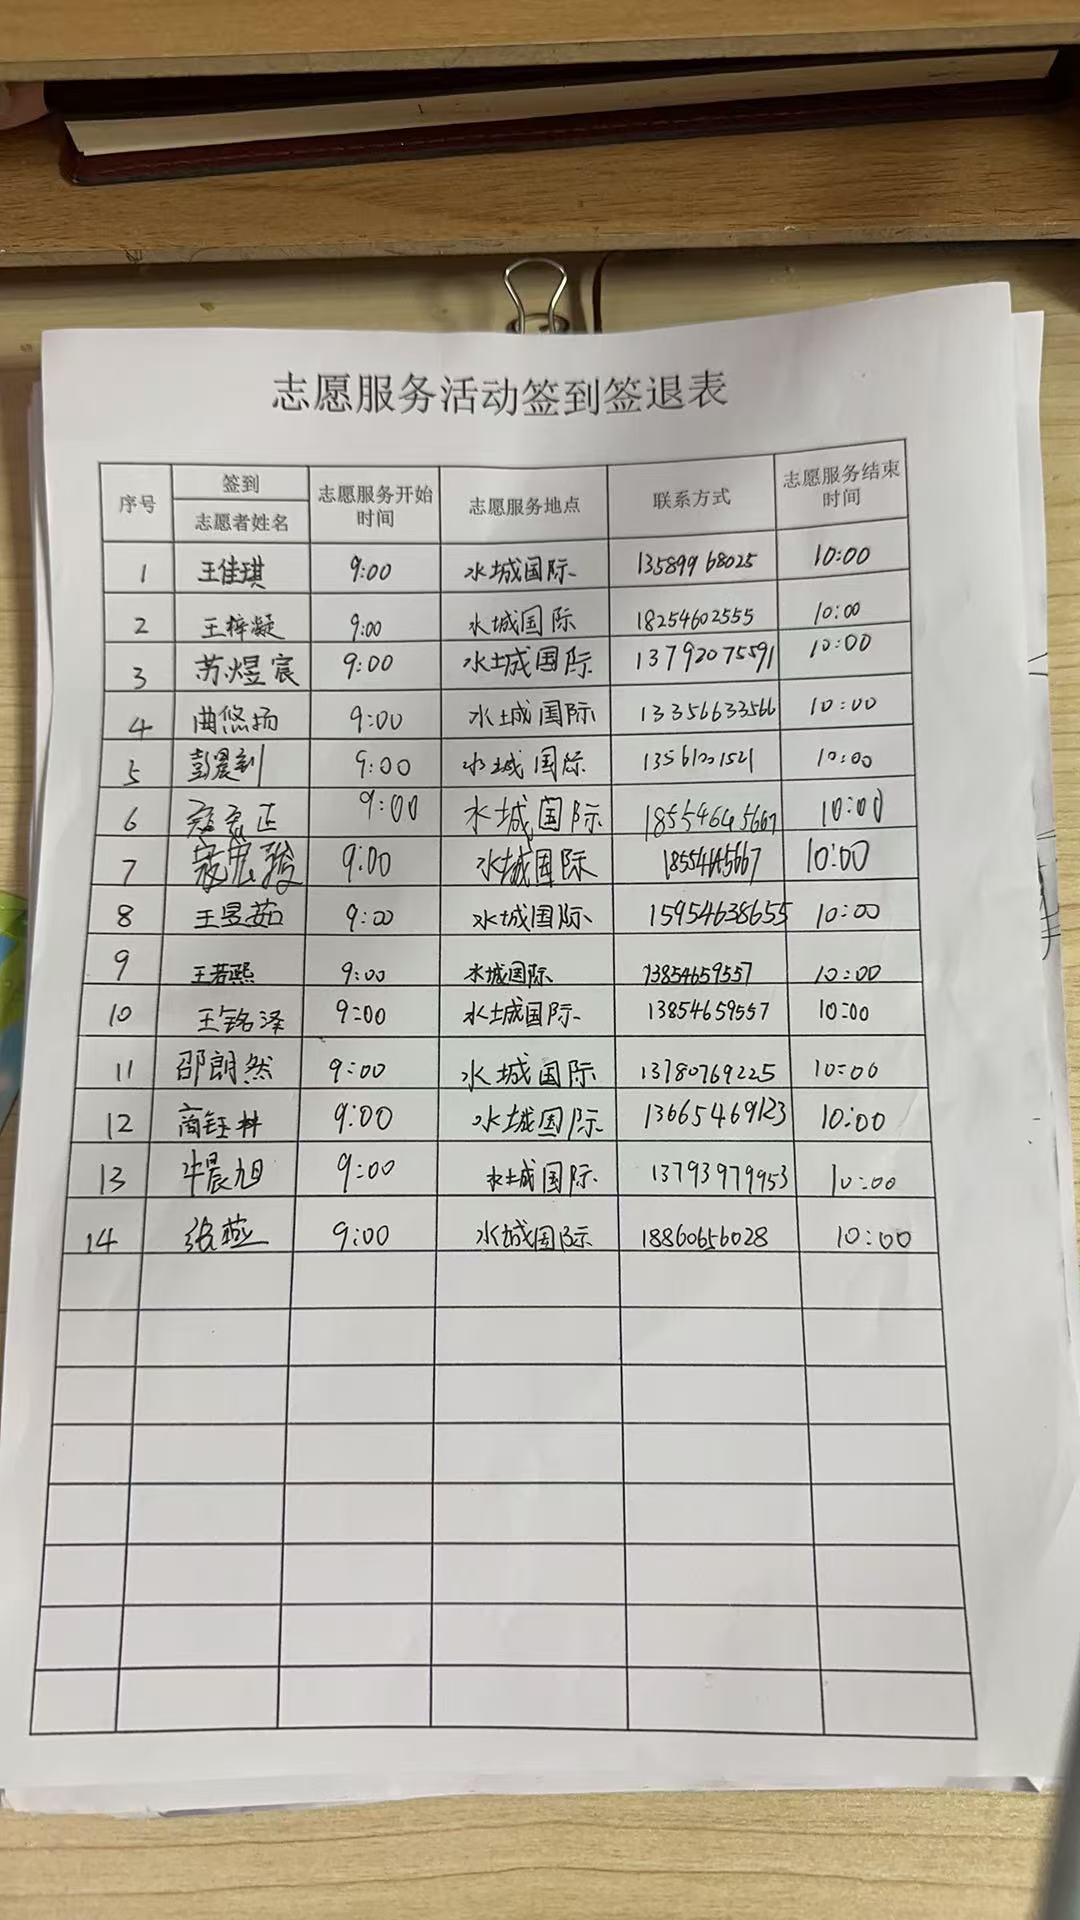 志愿服务活动签到签退表
序号 签到 志愿者姓名 志愿服务开始时间 志愿服务地点 联系方式 志愿服务结束时间
1 王佳琪 9:00 水城国际 13589968025 10:00
2 王梓凝 9:00 水城国际 18254602555 10:00
3 苏煜宸 9:00 水城国际 13792075591 10:00
4 曲悠扬 9:00 水城国际 13356633566 10:00
5 9:00 水城国际 10:00
6 9:00 水城国际 18554645667 10:00
7 寇宏骏 9:00 水城国际 18554645667 10:00
8 王昱茹 9:00 水城国际 15954638655 10:00
9 王若熙 9:00 水城国际 13854659557 10:00
10 王铭泽 9:00 水城国际 13854659557 10:00
11 邵朗然 9:00 水城国际 13780769225 10:00
12 商钰林 9:00 水城国际 13665469123 10:00
13 牛晨旭 9:00 水城国际 13793979953 10:00
14 张燕 9:00 水城国际 18860656028 10:00